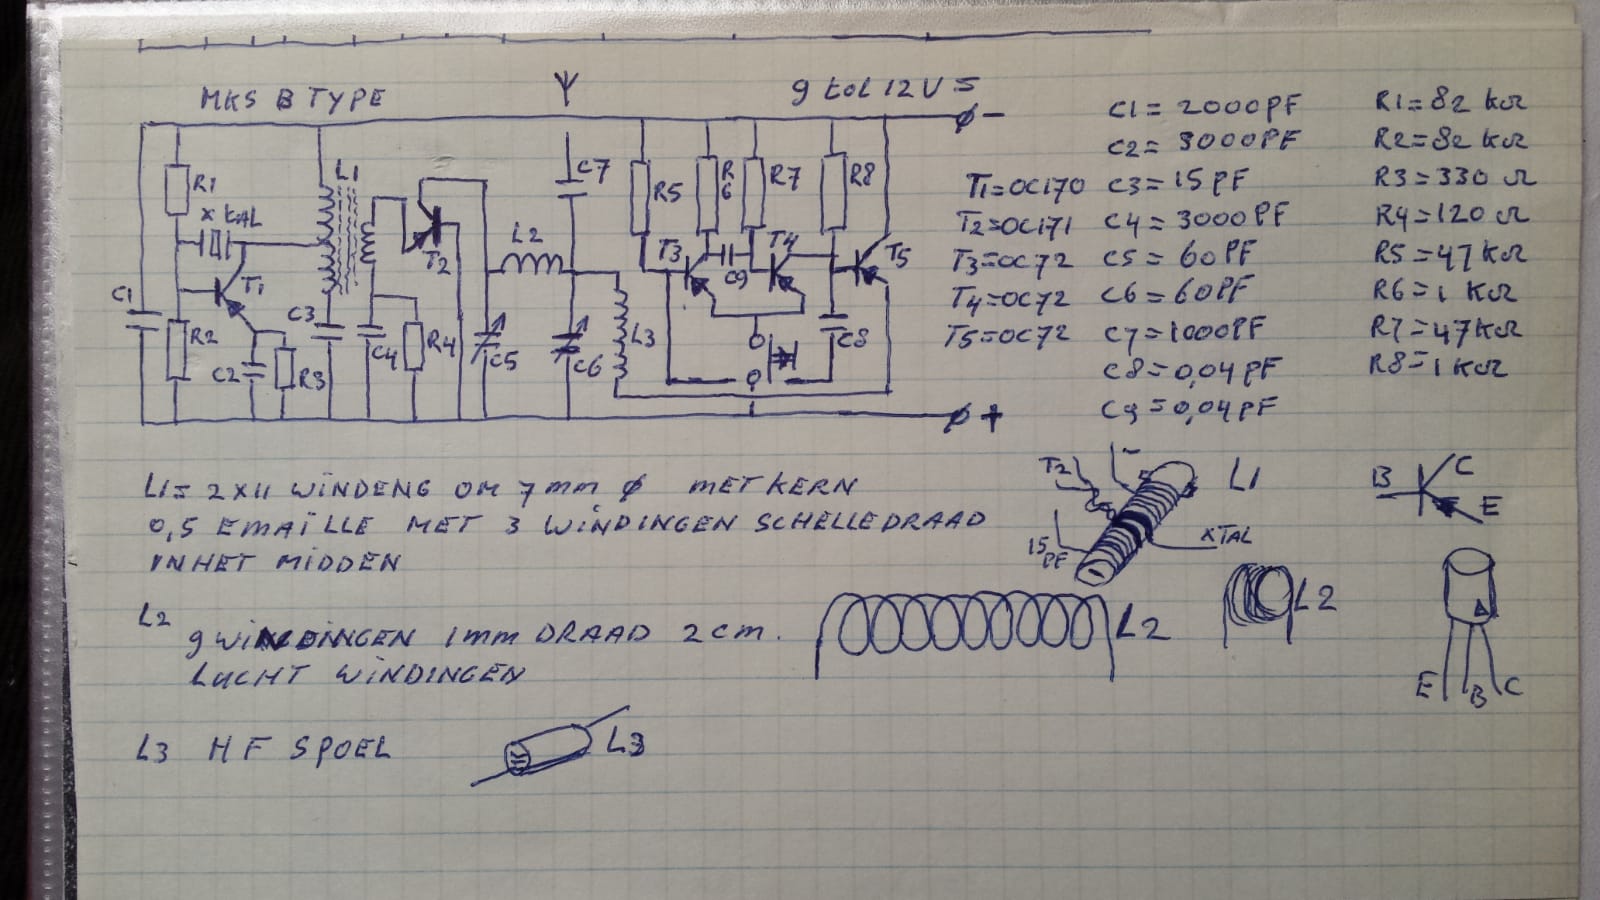 MKS B TYPE
9 tot 12 V =
Ø -
R1
X KAL
L1
T1
T2
L2
C7
R5
R6
R7
R8
T3
C9
T4
T5
C1
R2
C2
R3
C3
C4
R4
C5
C6
L3
C8
Ø +
T1=OC170
T2=OC171
T3=OC72
T4=OC72
T5=OC72
C1= 2000PF
C2= 3000PF
C3=15PF
C4= 3000PF
C5 = 60PF
C6=60PF
C7=1000PF
C8=0,04PF
C9=0,04PF
R1=82 kΩ
R2=82 kΩ
R3=330 Ω
R4=120 Ω
R5=47kΩ
R6=1 KΩ
R7=47kΩ
R8=1 KΩ
L1= 2X11 WINDENG OM 7mm Ø MET KERN
0,5 EMAÏLLE MET 3 WINDINGEN SCHELLEDRAAD
IN HET MIDDEN
T2
-
L1
15 PF
XTAL
B
C
E
L2
9 WINDINGEN 1mm DRAAD 2cm.
LUCHT WINDINGEN
L2
L2
E B C
L3 HF SPOEL
L3